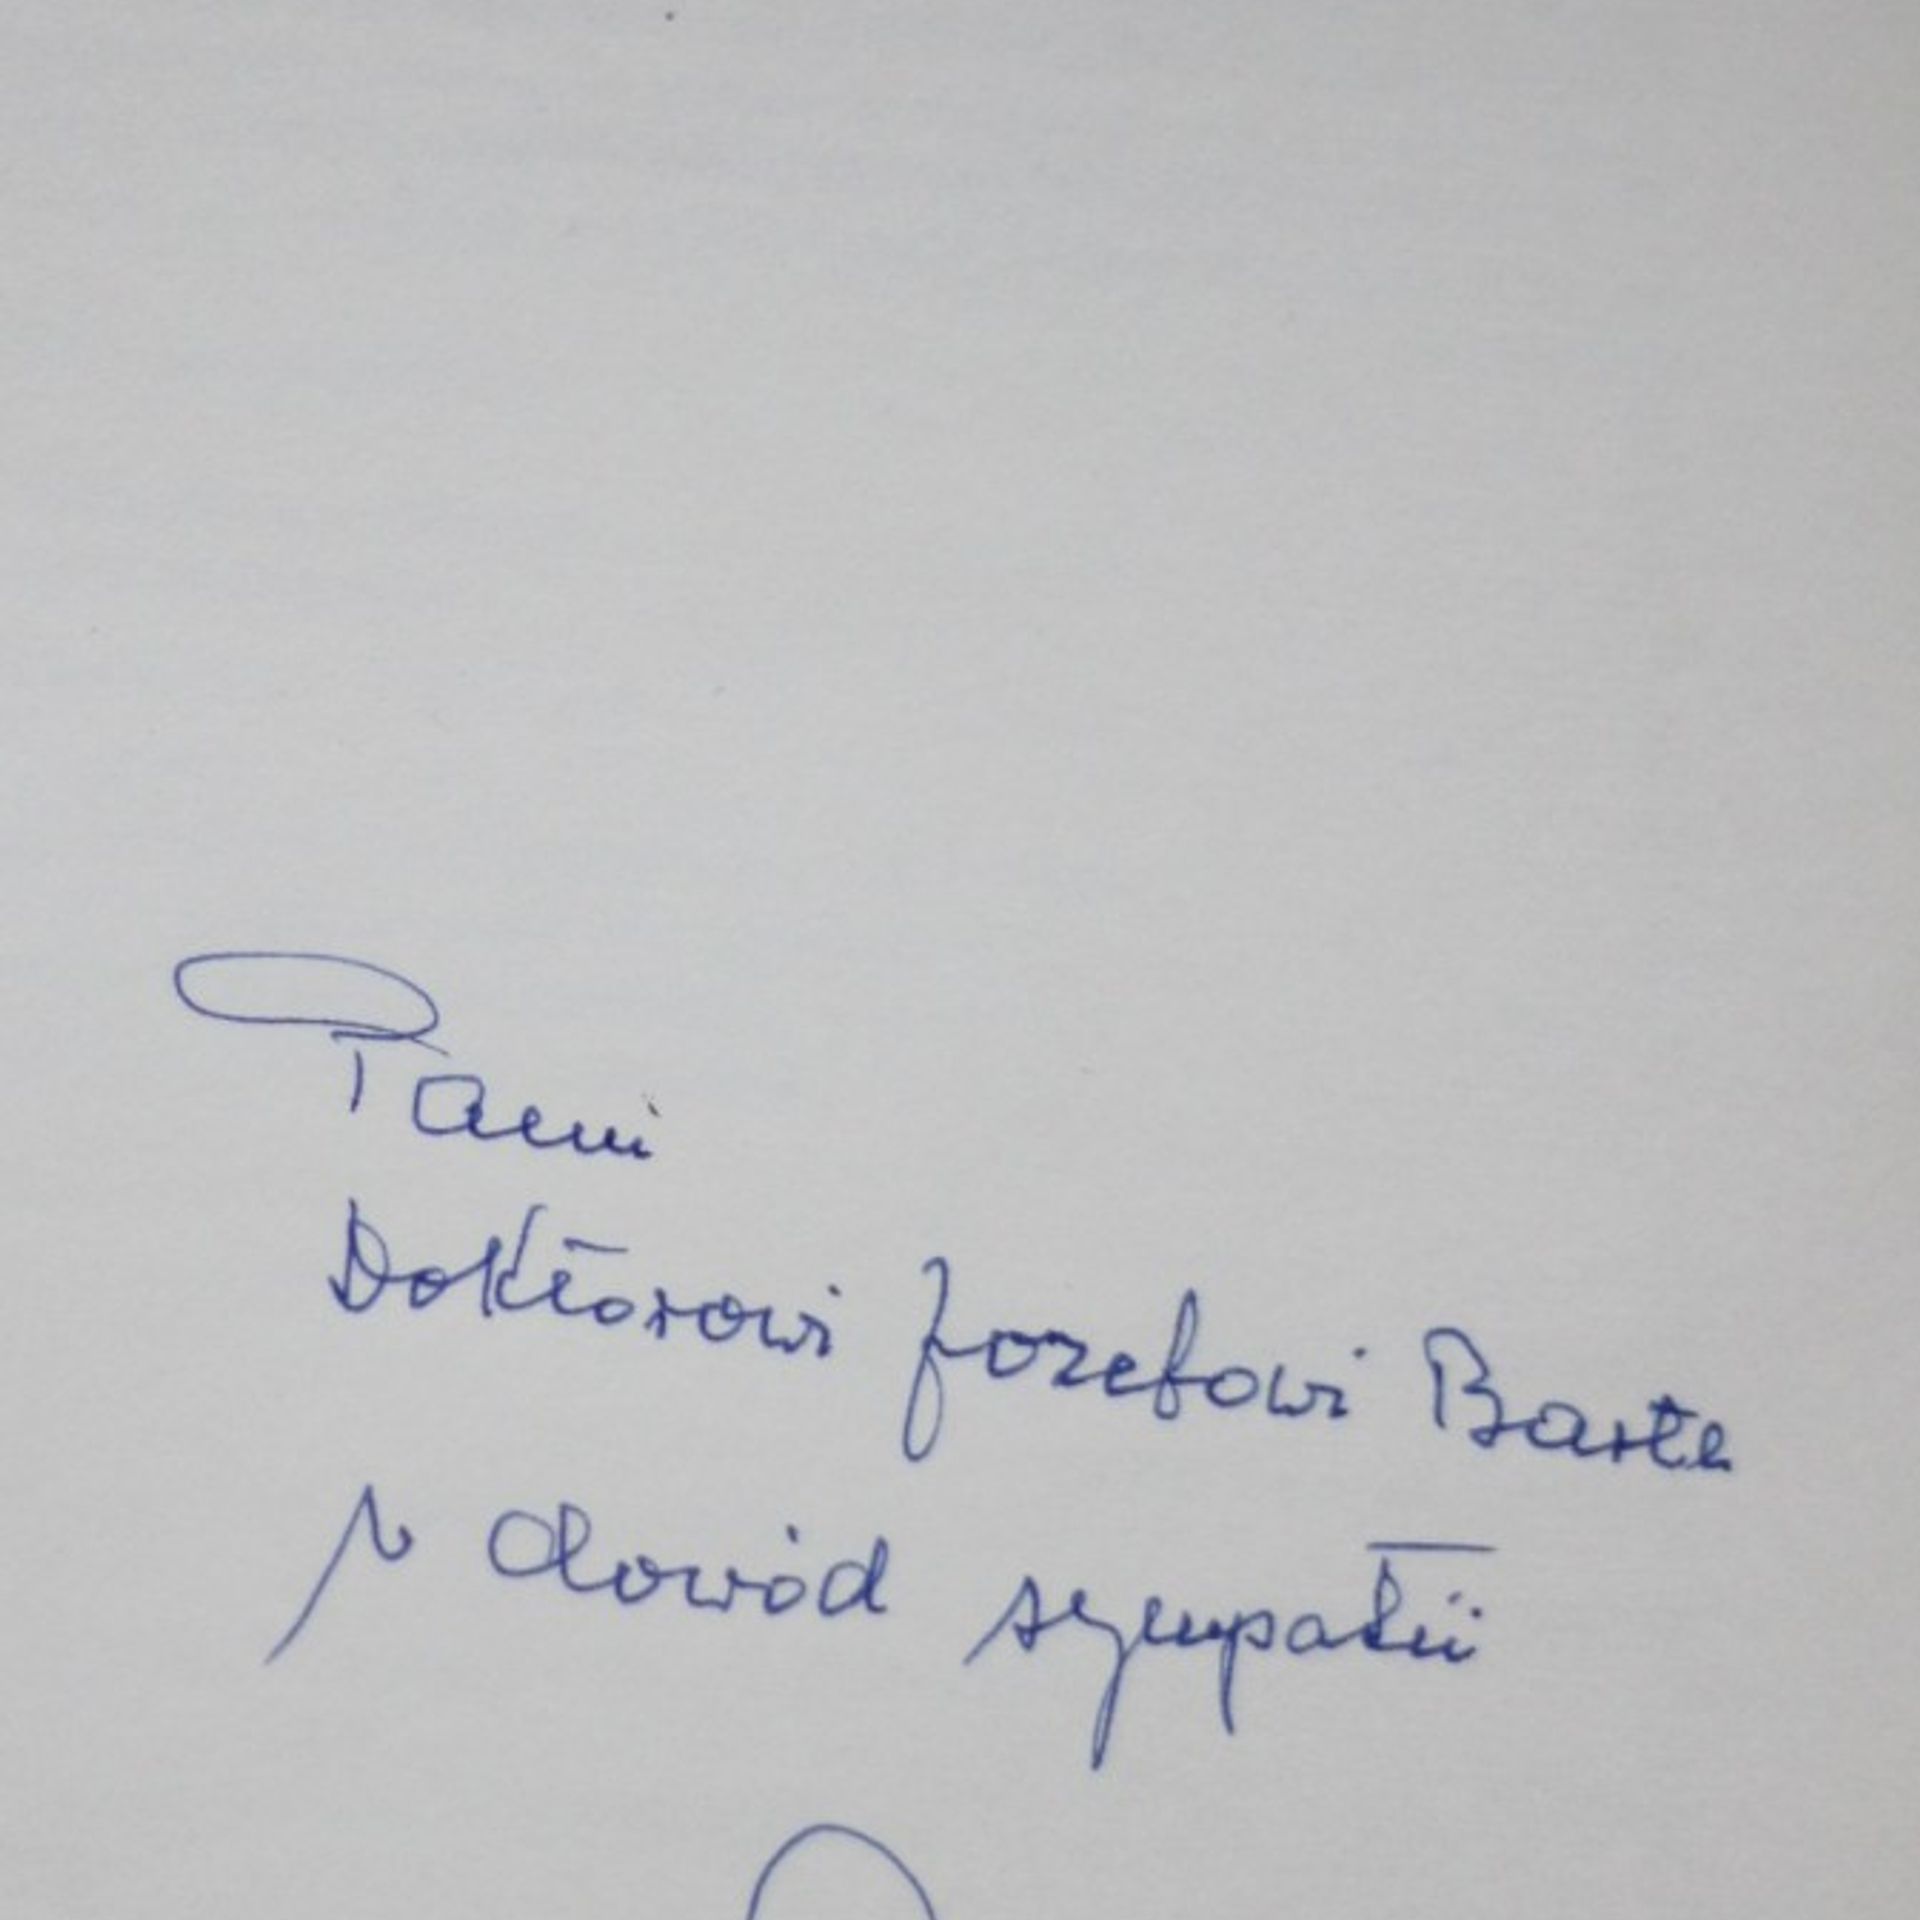 Panu
Doktorowi Jozefowi Barte
w dowód sympatii